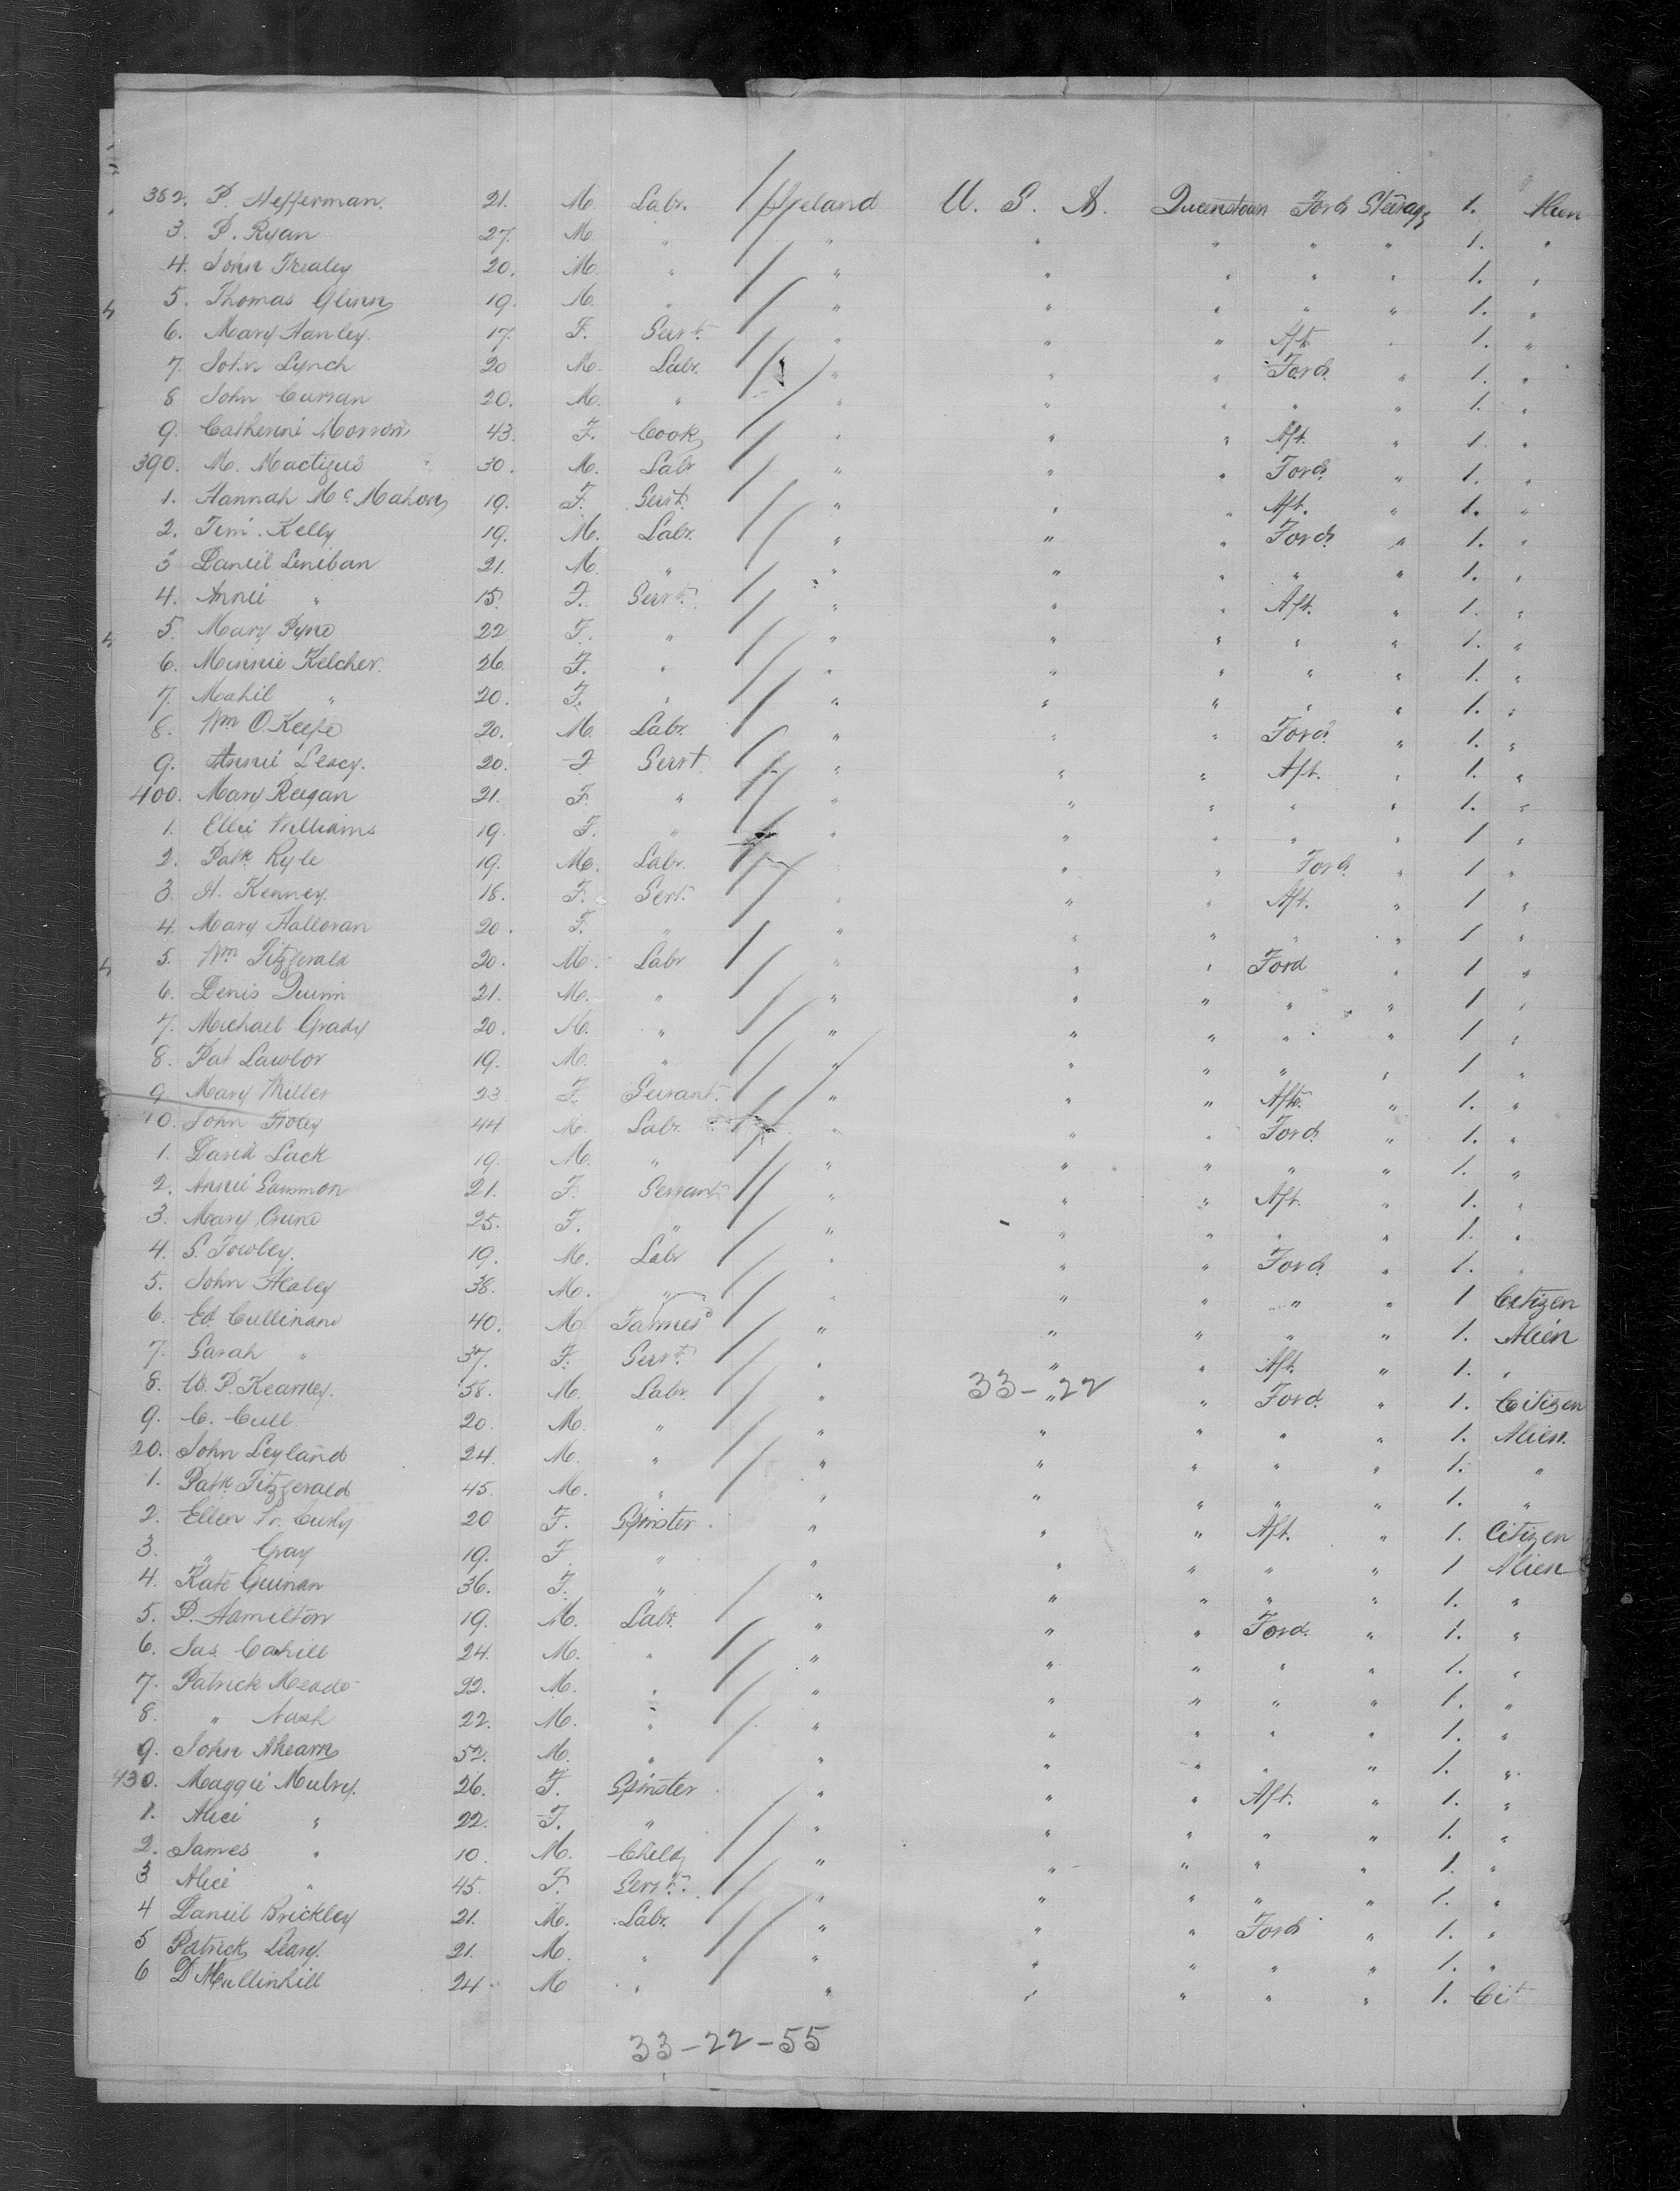 382. P. Hefferman. 21. M. Labr. Ireland U. S. A. Queenstown Ford Steerage 1. Alien
3. P. Ryan 27. M. " " " " " " 1. "
4. John Frealey 20. M. " " " " " " 1. "
5. Thomas Glinn 19. M. " " " " " " 1. "
6. Mary Hanley. 17. F. Servt. " " " Aft. " 1. "
7. John Lynch 20 M. Labr. " " " Ford. " 1. "
8 John Curran 20. M. " " " " " " 1. "
9. Catherine Morrow 43. F. Cook " " " Aft. " 1. "
390. M. 30. M. Labr " " " Ford. " 1. "
1. Hannah Mc Mahon 19. F. Servt. " " " Aft. " 1. "
2. Tim. Kelly 19. M. Labr. " " " Ford. " 1. "
3 Daniel Leniban 21. M. " " " " " " 1. "
4. Annie " 15. F. Servt. " " " Aft. " 1. "
5. Mary Pyne 22 F. " " " " " " 1. "
6. Minnie Kelcher. 26 F. " " " " " " 1. "
7. Mahil " 20. F. " " " " " " 1. "
8. Wm O.Keefe 20. M. Labr. " " " Ford. " 1. "
9. Annie Leacy. 20. F Servt. " " " Aft. " 1. "
400. Mary Regan 21. F. " " " " " " 1. "
1. Ellie Williams 19. F. " " " " " " 1 "
2. Patk. Kyle 19. M. Labr. " " Ford. " 1 "
3. H. Kenney. 18. F. Sert. " " " Aft. " 1 "
4. Mary Halloran 20. F. " " " " " " 1 "
5. Wm Fitzgerald 20. M. Labr " " " Ford " 1 "
6. Denis Quinn 21. M. " " " " " " 1 "
7. Michael Grady 20. M. " " " " " " 1 "
8. Pat Lawlor 19. M. " " " " " " 1 "
9 Mary Miller 23 F. Servant. " " " Aft. " 1. "
10. John Foley 44 M. Labr. " " " Ford. " 1. "
1. David Lack 19. M. " " " " " " 1. "
2. Annie Sammon 21. F. Servant " " " Aft. " 1. "
3. Mary Crune 25. F. " " " " " " 1. "
4. S. Fowley. 19. M. Labr " " " Ford. " 1. "
5. John Healey 38. M. " " " " " " 1 Citizen
6. Ed. Cullinane 40. M. Farmer " " " " " 1. Alien
7. Sarah " 37. F. Servt. " " " Aft. " 1. "
8. W. P. Kearney. 58. M. Labr. " 33-"22 " Ford. " 1. Citizen
9. C. Cull 20. M. " " " " " " 1. Alien.
20. John Leyland 24. M. " " " " " " 1. "
1. Patk. Fitzgerald 45. M. " " " " " " 1. "
2. Ellen Fr. Curly 20 F. Spinster. " " " Aft. " 1. Citizen
3. " Gray 19. F. " " " " " " 1 Alien
4. Kate Guinan 36. F. " " " " " " 1. "
5. P. Hamilton 19. M. Labr. " " " Ford. " 1. "
6. Jas. Cahill 24. M. " " " " " " 1. "
7. Patrick Meade 22. M. " " " " " " 1. "
8. " Nash 22. M. " " " " " " 1. "
9. John Ahearn 52. M. " " " " " " 1. "
430. Maggie Mulry. 26. F. Spinster. " " " Aft. " 1. "
1. Alice " 22. F. " " " " " " 1. "
2. James " 10. M. Child " " " " " 1. "
3 Alice " 45. F. Servt. " " " " " 1. "
4 Daniel Brickley 21. M. Labr. " " " Ford " 1. "
5 Patrick Leary. 21. M. " " " " " " 1. "
6 D Mullinhill 24 M " " " " " " 1. Cit
33-22-55